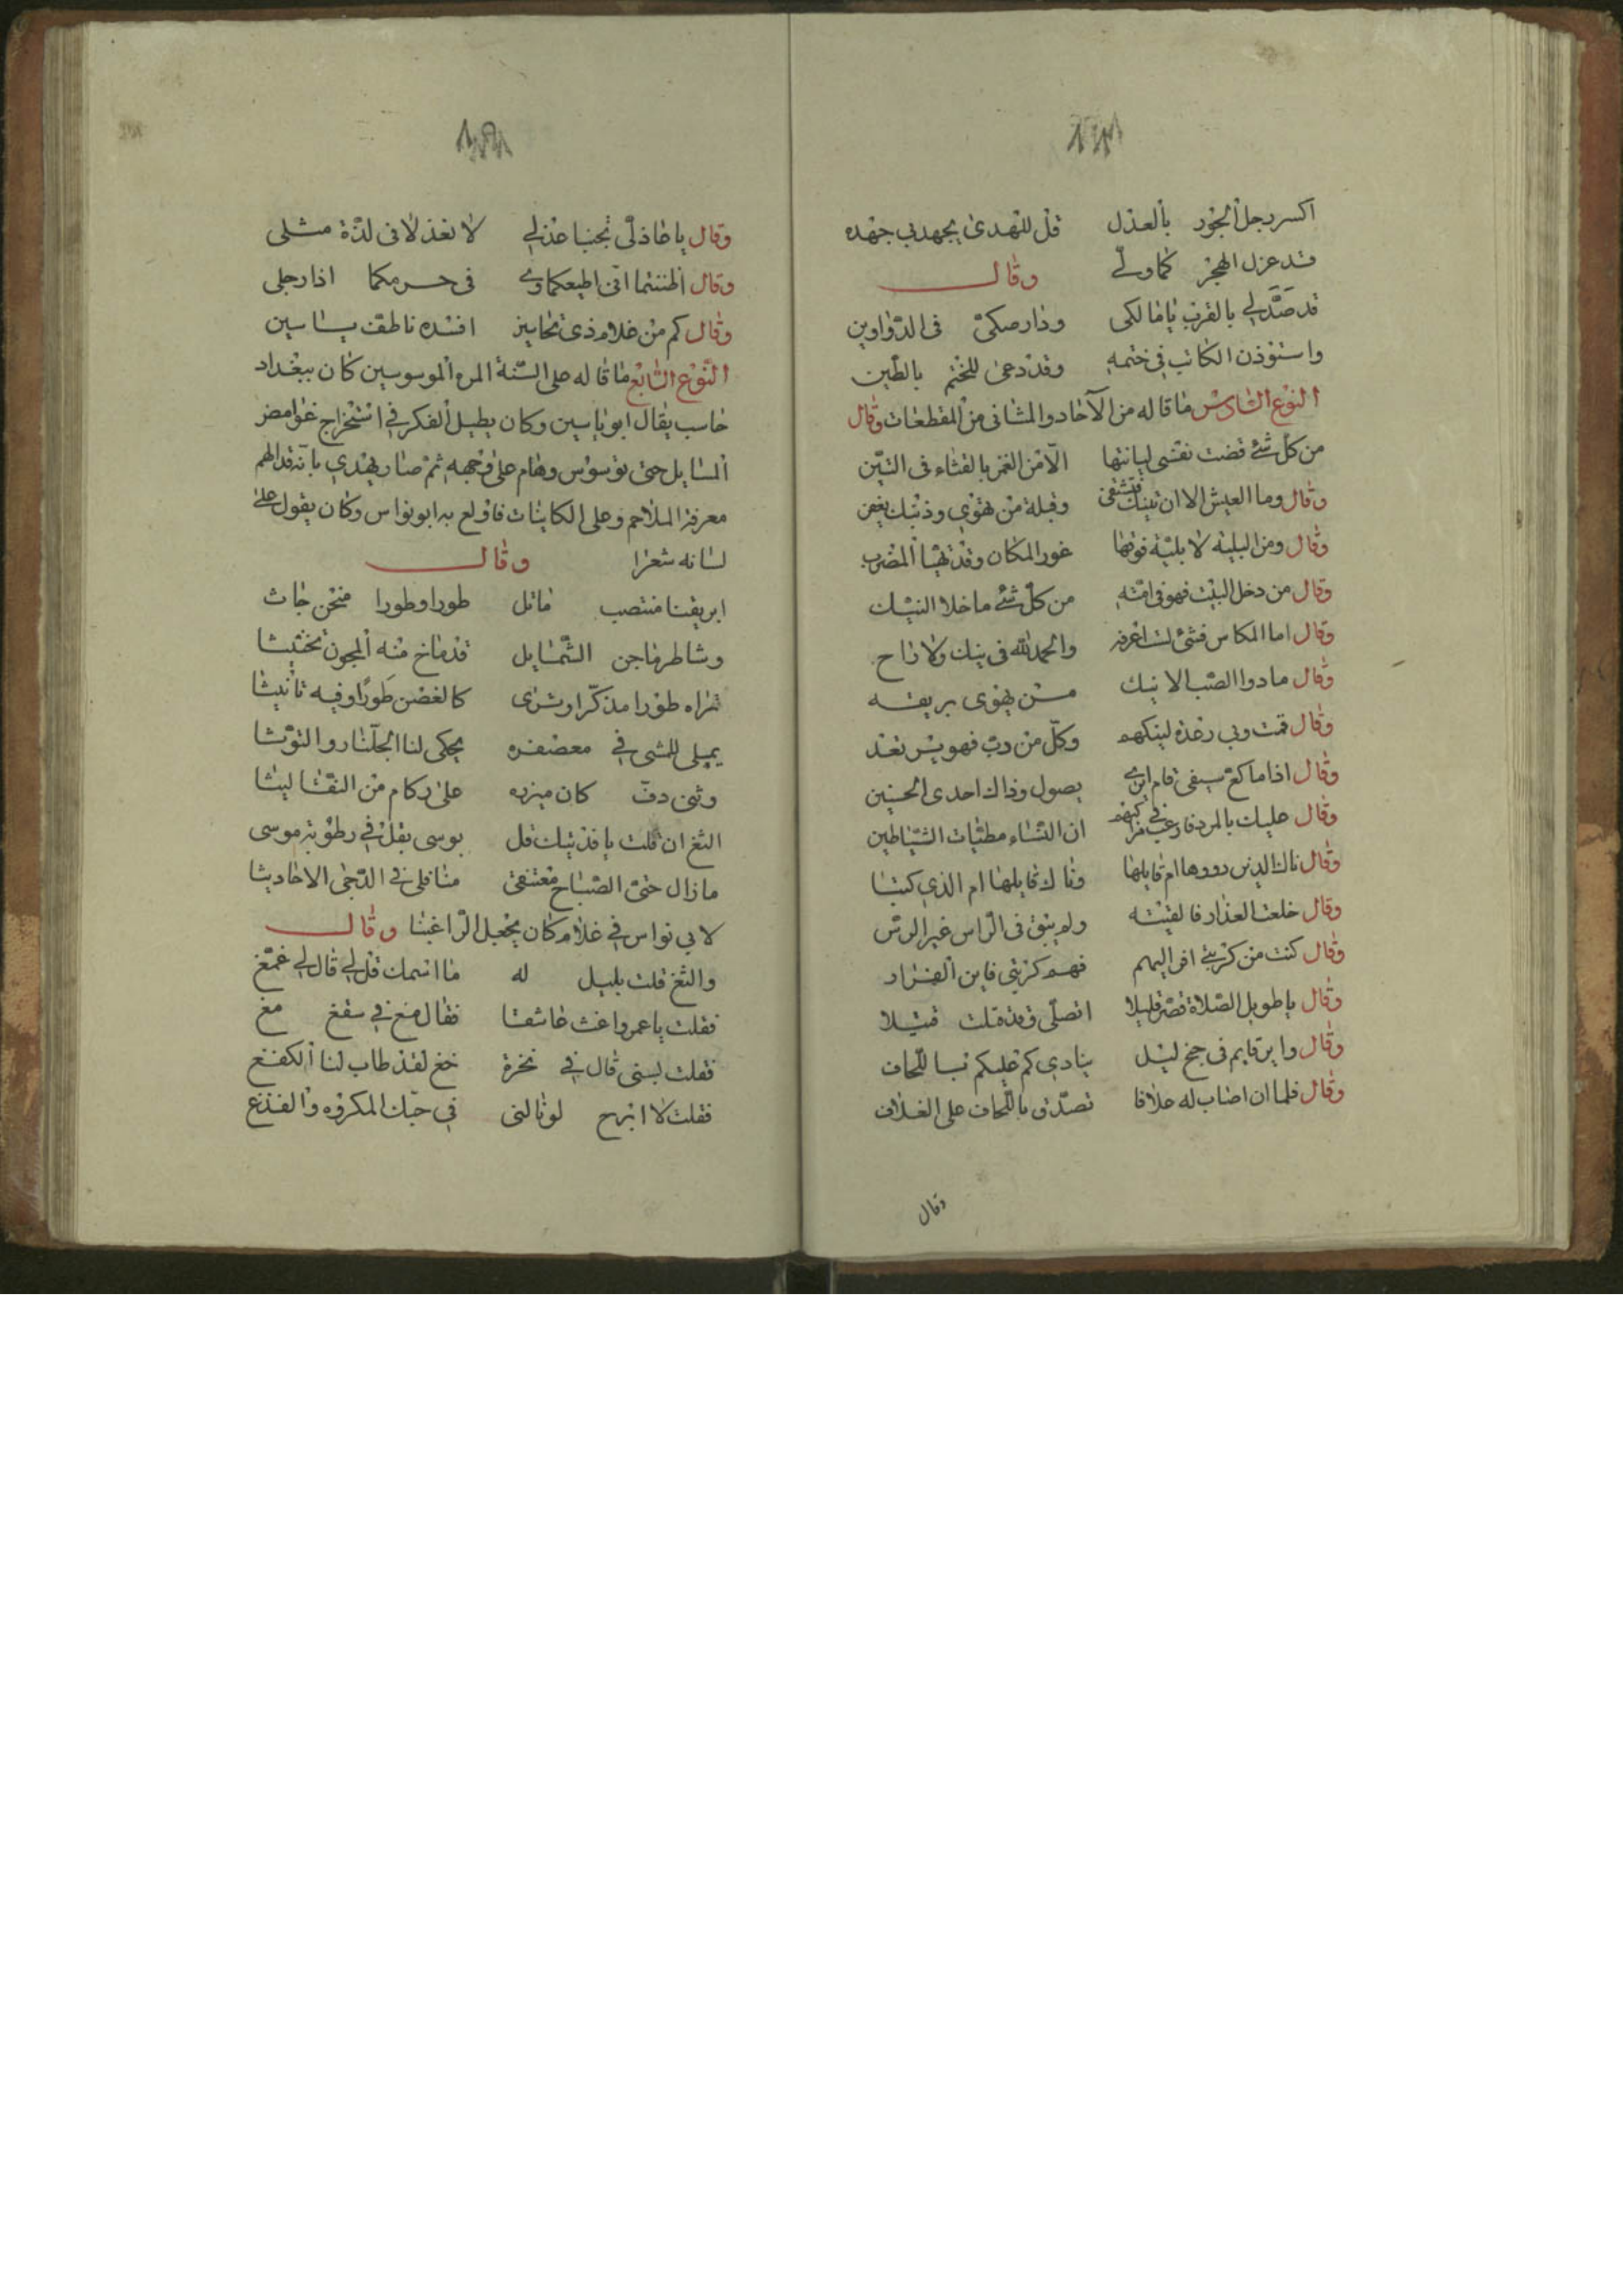 اكسر رجل الجور بالعذل قل للنهدى يجهد بي جهده
قد عزل الهجر كما ولّي وقال
قد صَدّ لي بالقرب يا مالكى ودار صكىّ فى الدّواوين
واستوذن الكاتب في ختمه وقد دعى للختم بالطّين
النوع السّادس ما قاله من الآحاد والمثانى من المقطعات وقال
من كل شئ قضت نفسى لبانتها الّا من الغمز بالقثاء فى التّين
وقال وما العيش الا ان تنيك فتشتفى وقبلة من تهوى وذنبك يغفر
وقال ومن البلية لا بليّة فوقها عوز المكان وقد تهيّأ المضرب
وقال من دخل البيت فهو فى امنه من كلّ شئ ما خلا النيك
وقال اما المكاس فشئ لست اعرفه والحمد لله فى نيك ولا راح
وقال ما دوا الصّب الا نيك من يهوى بريقه
وقال قمت وبى رعدة لنيكهم وكلّ من دبّ فهو يرتعد
وقال اذا ما كعّ سيفى قام ايرى يصول وذاك احدى الحسنين
وقال عليك بالمرد فارغب فى ان النّساء مطيّات الشّياطين
وقال ناك الذين رووها ام قايلها وناك قايلها ام الذي كتبا
وقال خلعت العذار فالقيته ولم يبق فى الرّاس غير الرسن
وقال كنت من كربتي افر اليهم فهم كربتي فاين الفرار
وقال يا طويل الصّلاة قصّر قليلا اتصلّى وقد قتلت قتيلا
وقال واير قايم فى جنح ليل ينادي كم عليكم نسا للّحاف
وقال فلما ان اصاب له علافا تصدّق باللّحاف على الغلاف
وقال
وقال يا عاذلىّ تجنبا عذلي لا تعذلا فى لذّة مثلى
وقال اظننتما انّى اطيعكما فى حرمكما اذا رجلى
وقال كم من غلام ذى تحاسين افسده ناطف ياسين
النّوع السّابع ما قاله على السنة المره الموسوسين كان ببغداد
حاسب يقال ابو ياسين وكان يطيل الفكر في استخراج غوامض
المسايل حتى توسوس وهام على وجهه ثم صار يهذي بانه قد الهم
معرفة الملاحم وعلى الكاينات فاولع به ابو نواس وكان يقول على
لسانه شعرا وقال
ابريقنا منتصب ماثل طورا وطورا منحن جاث
وشاطر ماجن الشّمايل قد مازج منه المجون تخنيثا
تراه طورا مذكّرا وترى كالغصن طورًا وفيه تأنيثا
يميل للمشى فى معصفره يحكى لنا الجلّنار والتوثا
وثنى دفّ كان ميزره على ركام من النقا ليثا
الثغ ان قلت يا فديتك قل يوسى يقل في رطوبة موسى
ما زال حتى الصّباح معتنقى مناقلى فى الدّجى الاحاديثا
لابي نواس في غلام كان يجعل الرّا غينا وقال
والثغ قلت بليل له ما اسمك قل لي قال لي عمّغ
فقلت يا عمرو اغث عاشقا فقال مغ في سقغ مغ
فقلت بسنى قال في نخرة خغ لقد طاب لنا الكفغ
فقلت لا ابرح لو نالنى فى حبّك المكروه والفذغ